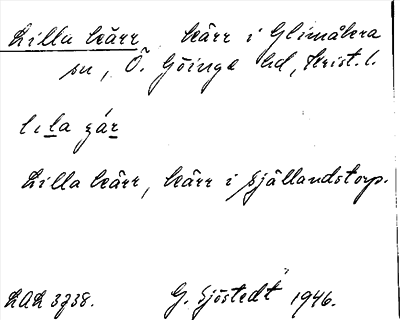 Lilla kärr kärr i Glimåkra
sn, Ö. Göinge hd, Krist. l.
Lilla kärr, kärr i Sjöllandstorp.
LAL 3738. G. Sjöstedt 1946.